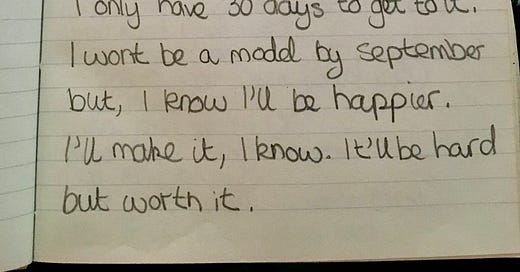 I only have 30 days to get to it.
I wont be a model by september
but, I know I'll be happier.
I'll make it, I know. It'll be hard
but worth it.